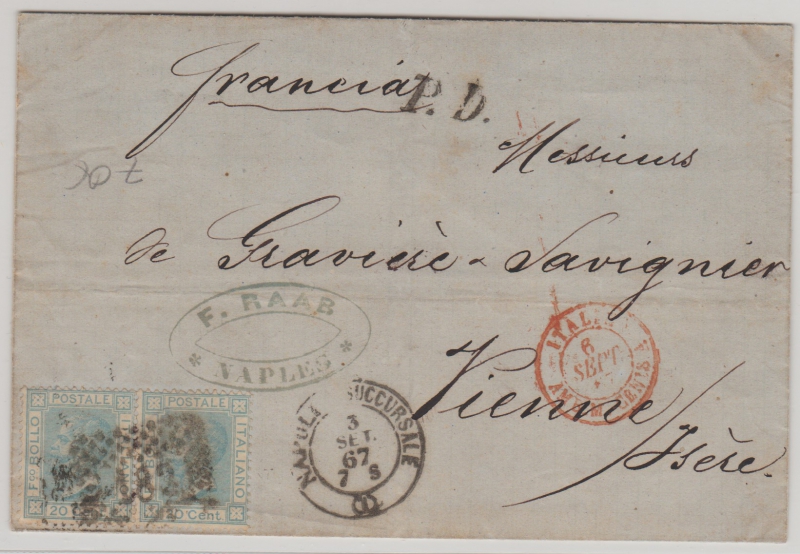 Francia
P. D.
Messieurs
de Gravière-Savignier
Vienne
Isère.
F. RAAB
* NAPLES *
NAPOLI SUCCURSALE
3
SET.
67
7 S
(1)
ITALIE
6
SEPT.
AMB. M. CENIS A
POSTALE
Fco BOLLO
20
POSTALE
ITALIANO
20 Cent.